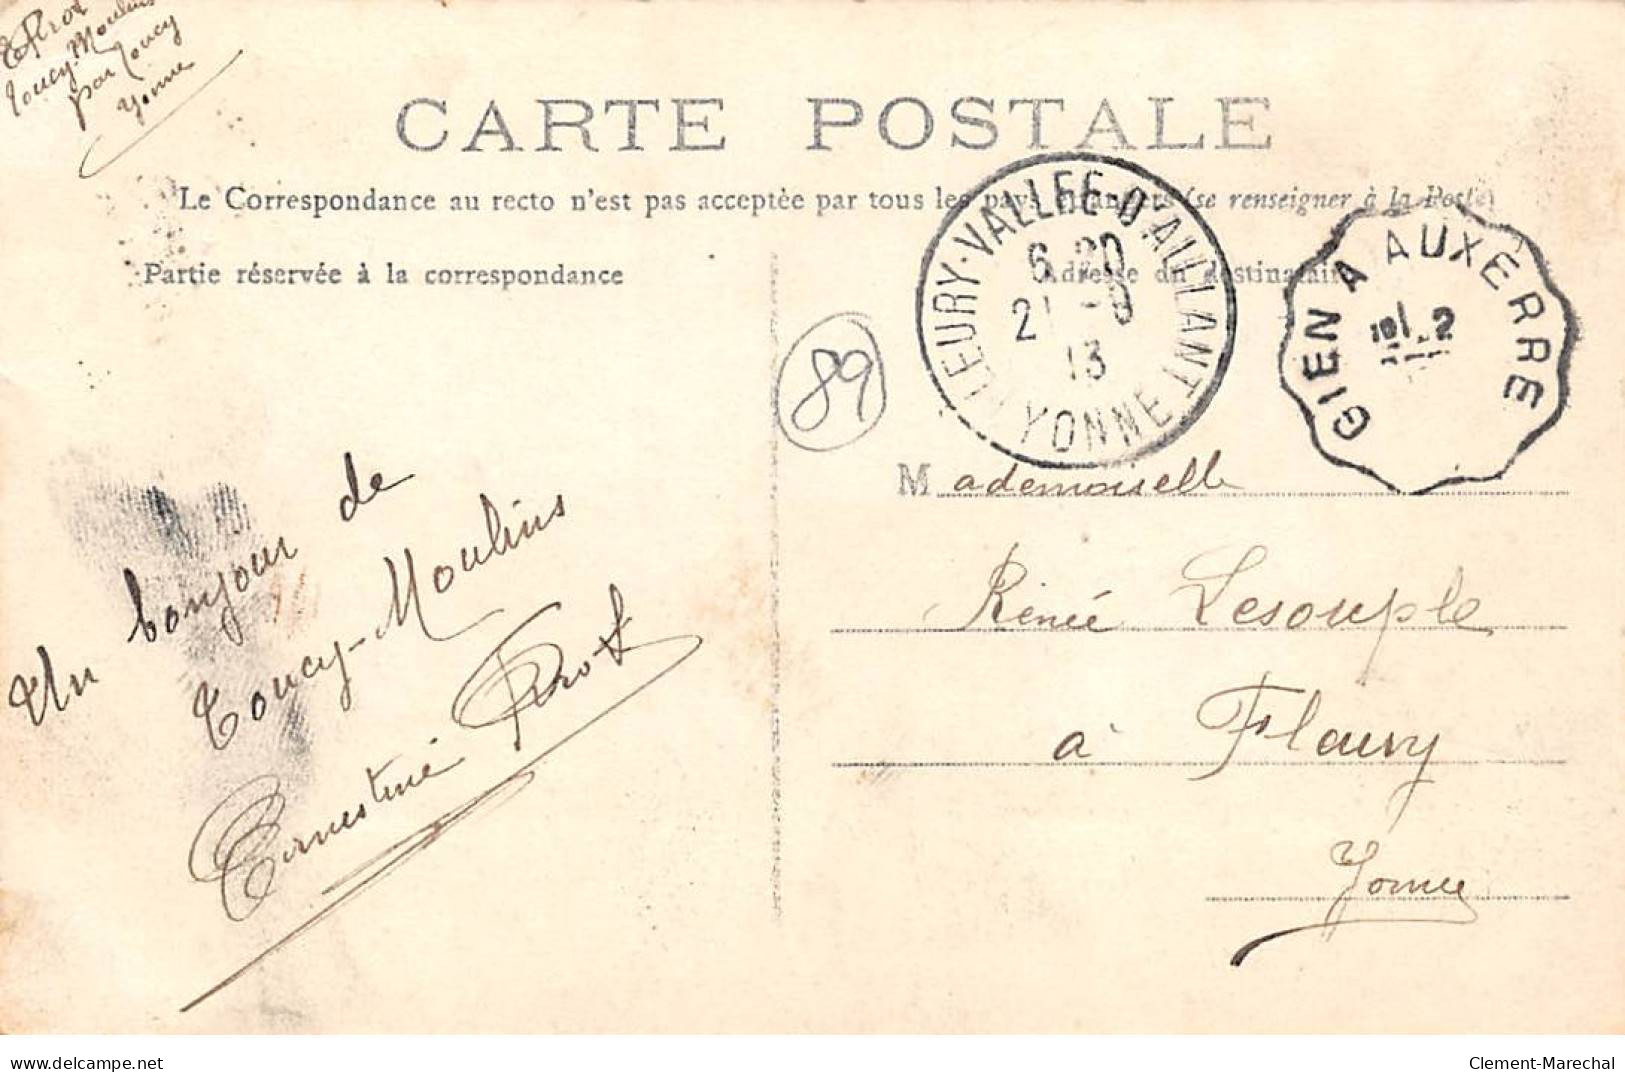 Toucy-Moulins
par Toucy
Yonne
CARTE POSTALE
Le Correspondance au recto n'est pas acceptée par tous les pays étrangers (se renseigner à la Poste)
Partie réservée à la correspondance
Adresse du destinataire
FLEURY-VALLEE-D'AILLANT
21
13
YONNE
GIEN A AUXERRE
89
Un bonjour de
Toucy-Moulins
Ernestine
Mademoiselle
Renée Lesouple
à Fleury
Yonne
www.delcampe.net
Clement-Marechal